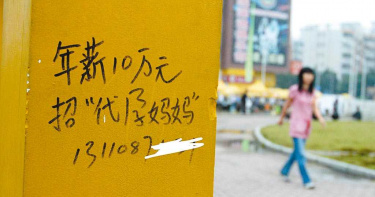 年薪10万元
招“代孕妈妈”
1311087